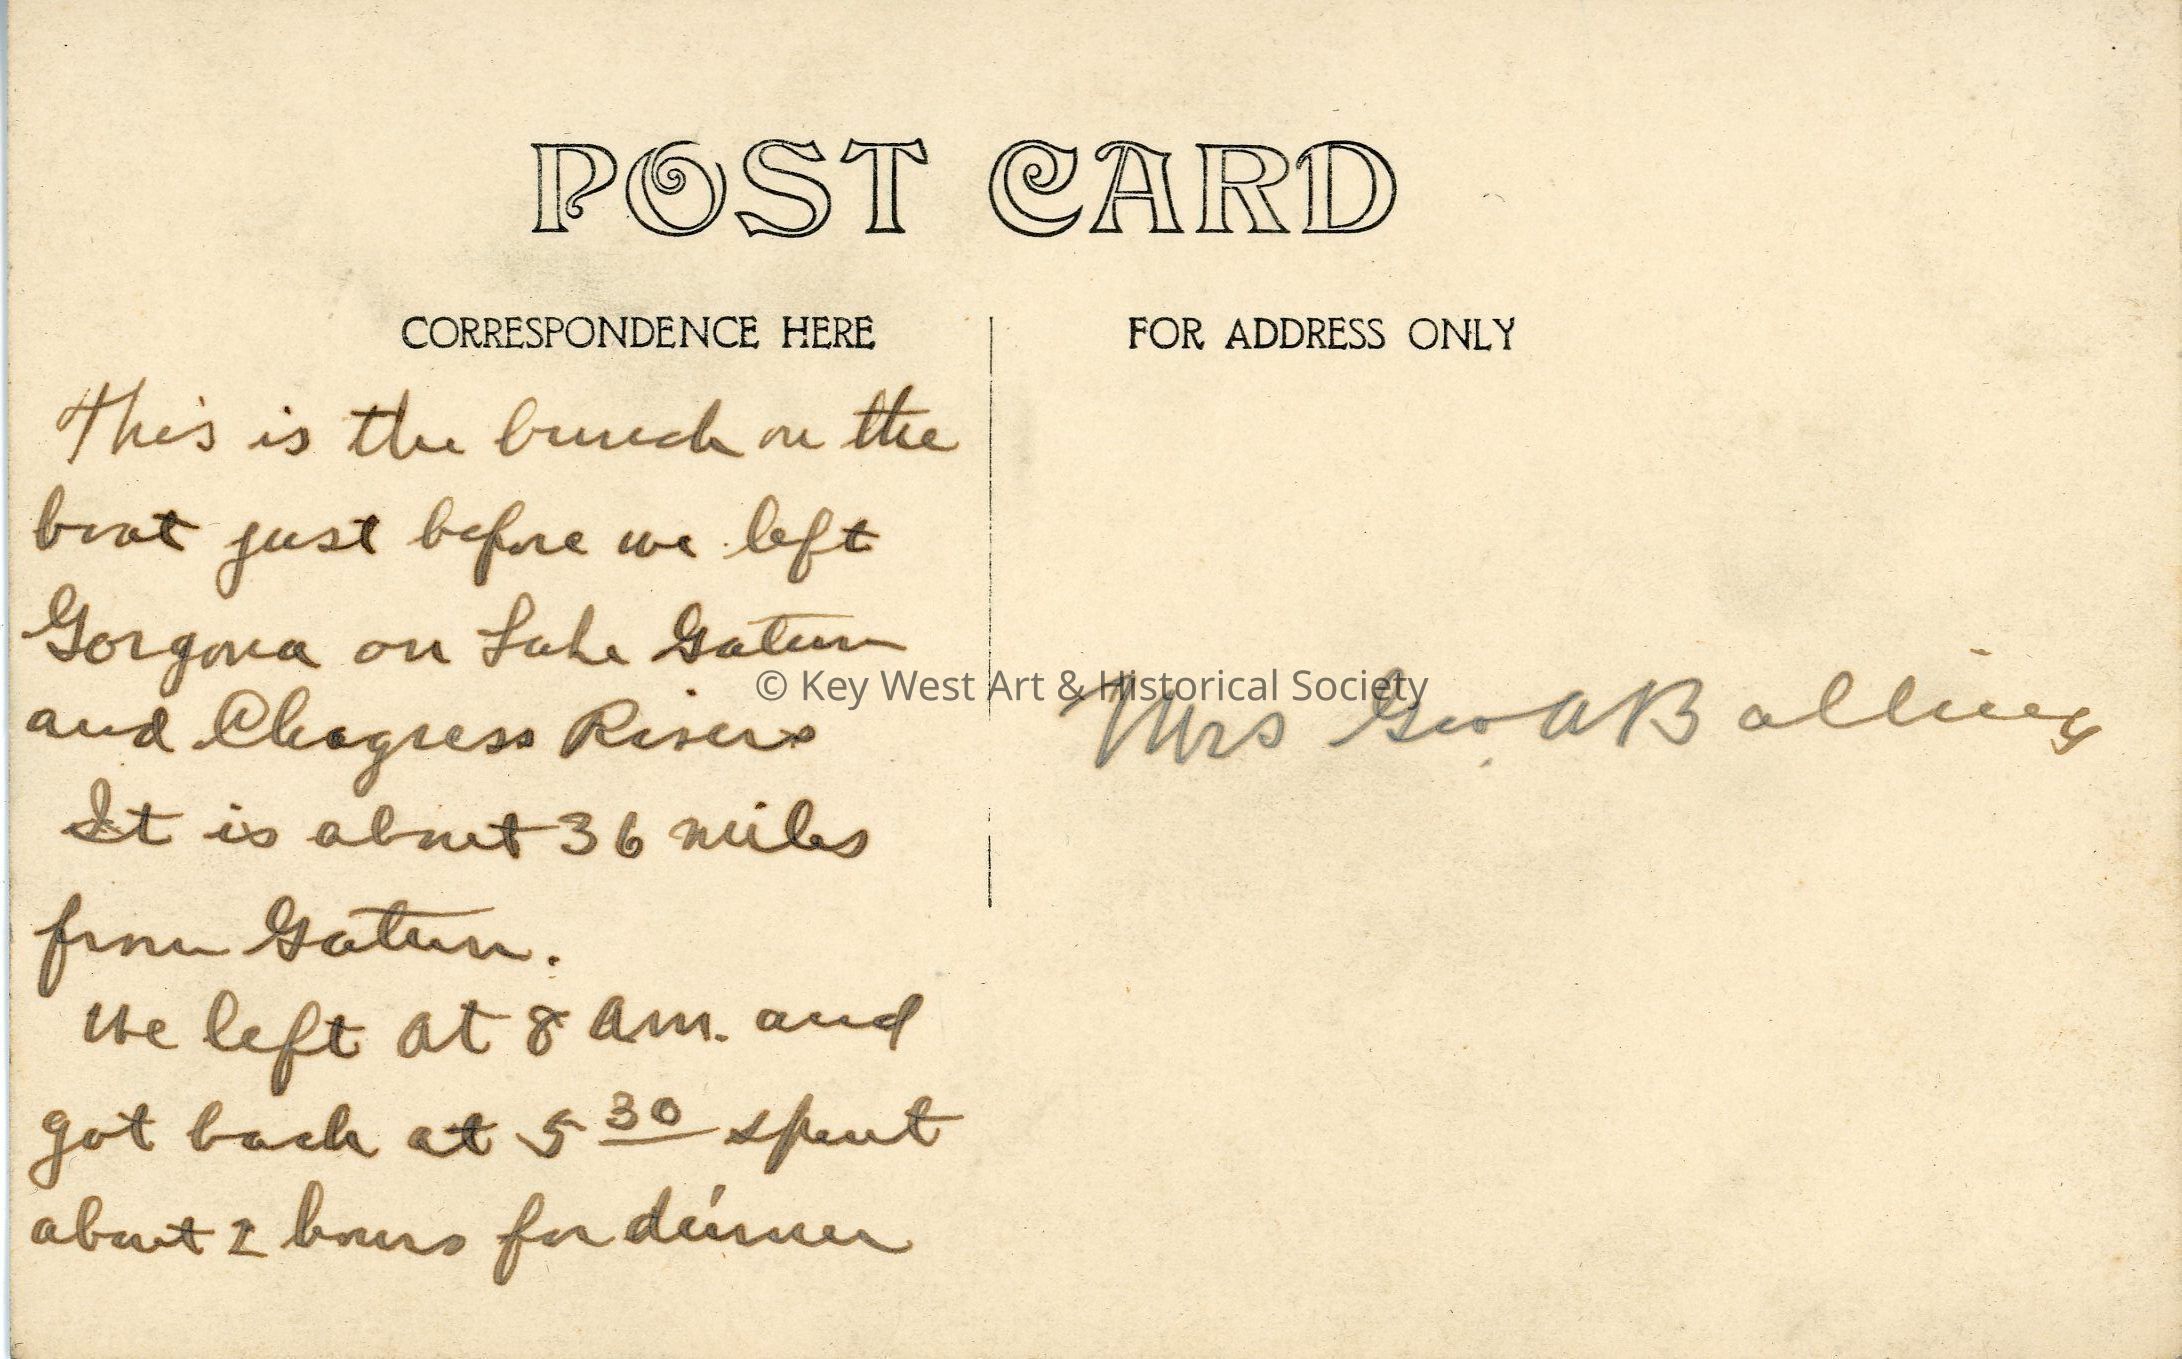 POST CARD
CORRESPONDENCE HERE
FOR ADDRESS ONLY
This is the bunch on the
boat just before we left
Gorgona on Lake Gatun
and Chagress Rivers
It is about 36 miles
from Gatun.
We left at 8 am. and
got back at 5 30 spent
about 2 hours for dinner
© Key West Art & Historical Society
Mrs Geo. A Balling